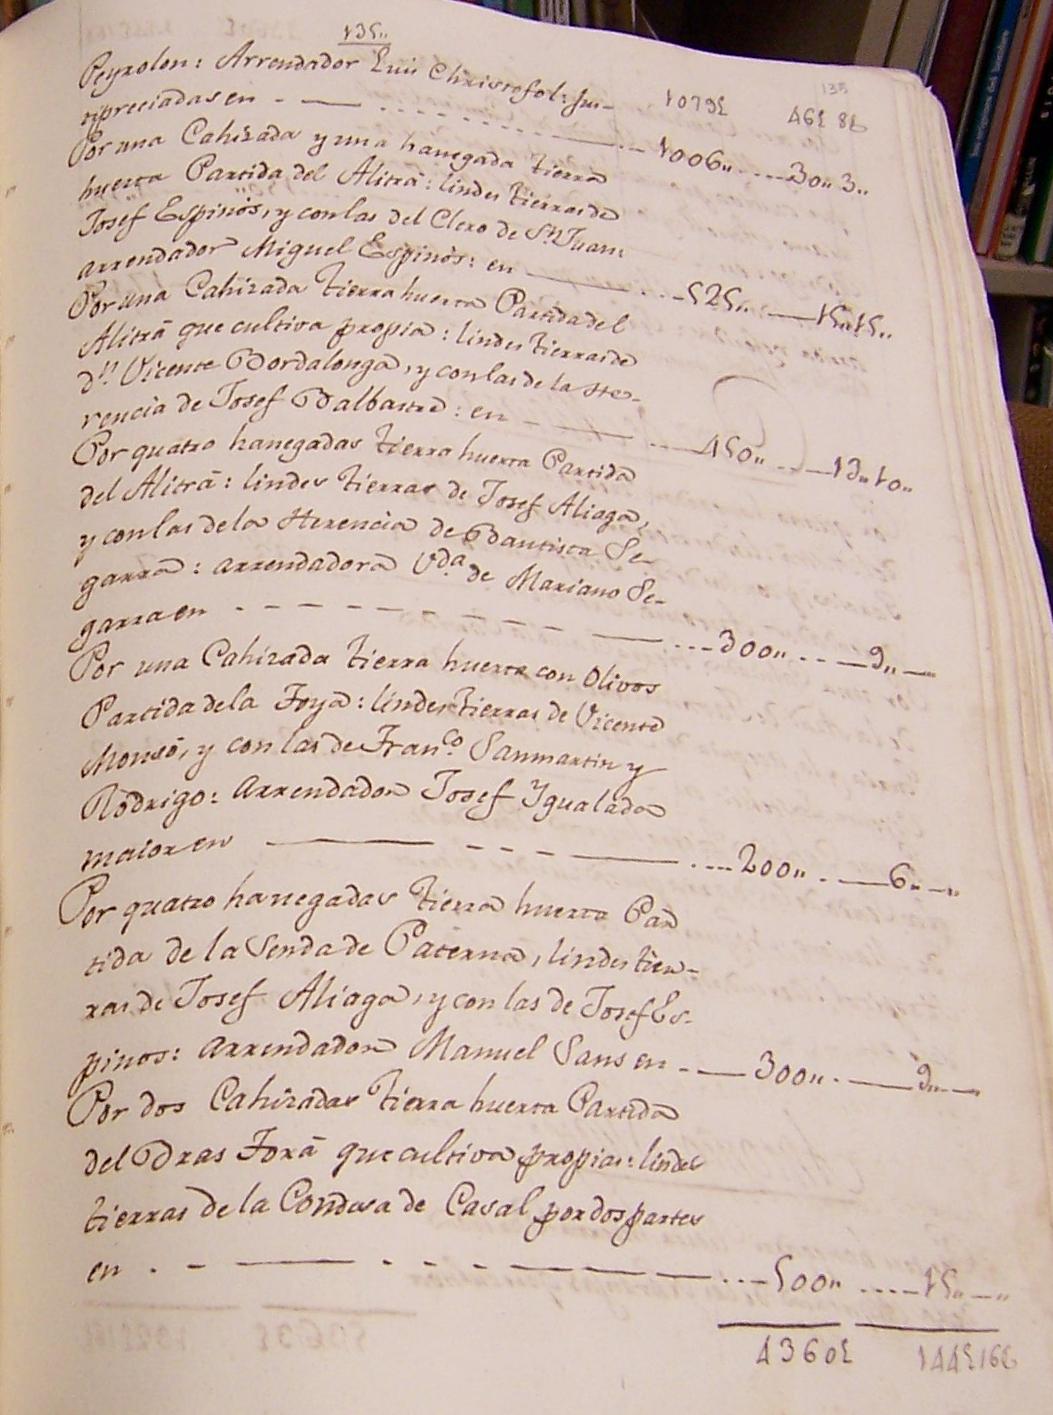 135,,
135
Peyrolon: Arrendador Luis Christofol: Jus- 1079£ 46£ 8
tipreciadas en - — - - - - - - 1006,, ---- 30,, 3,,
Por una Cahizada y una hanegada tierra
huerta Partida del Alitrá: lindes tierras de
Josef Espinós, y con las del Clero de Sn Juan:
arrendador Miguel Espinós: en — - - - 525,, — 15,, 15,,
Por una Cahizada tierra huerta Partida del
Alitrá que cultiva propia: lindes tierras de
dn Vicente Bordalonga, y con las de la He-
rencia de Josef Balbastre: en - — - - - 450,, - - — 13,, 10,,
Por quatro hanegadas tierra huerta Partida
del Alitrá: lindes tierras de Josef Aliaga,
y con las de la Herencia de Bautista Se-
garra: arrendadora Vda de Mariano Se-
garra en - - - - - - - — - - - 300,, - - — 9,, —
Por una Cahizada tierra huerta con Olivos
Partida de la Foya: lindes tierras de Vicente
Monsó, y con las de Franco Sanmartin y
Rodrigo: arrendador Josef Ygualada
maior en — - - - — - - - 200,, - — 6,, —,,
Por quatro hanegadas tierra huerta Par
tida de la Senda de Paterna, lindes tier-
ras de Josef Aliaga, y con las de Josef Es-
pinos: arrendador Manuel Sans en - — 300,, - — 9,, —
Por dos Cahizadas tierra huerta Partida
del Bras Forá que cultiva propias: lindes
tierras de la Condesa de Casal por dos partes
en - - — - - - — - - - 500,, - - - - 15,, —,,
4360£ 144£16